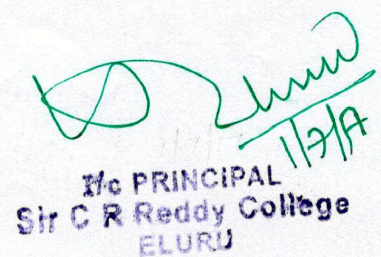 1/7/17
I/c PRINCIPAL
Sir C R Reddy College
ELURU